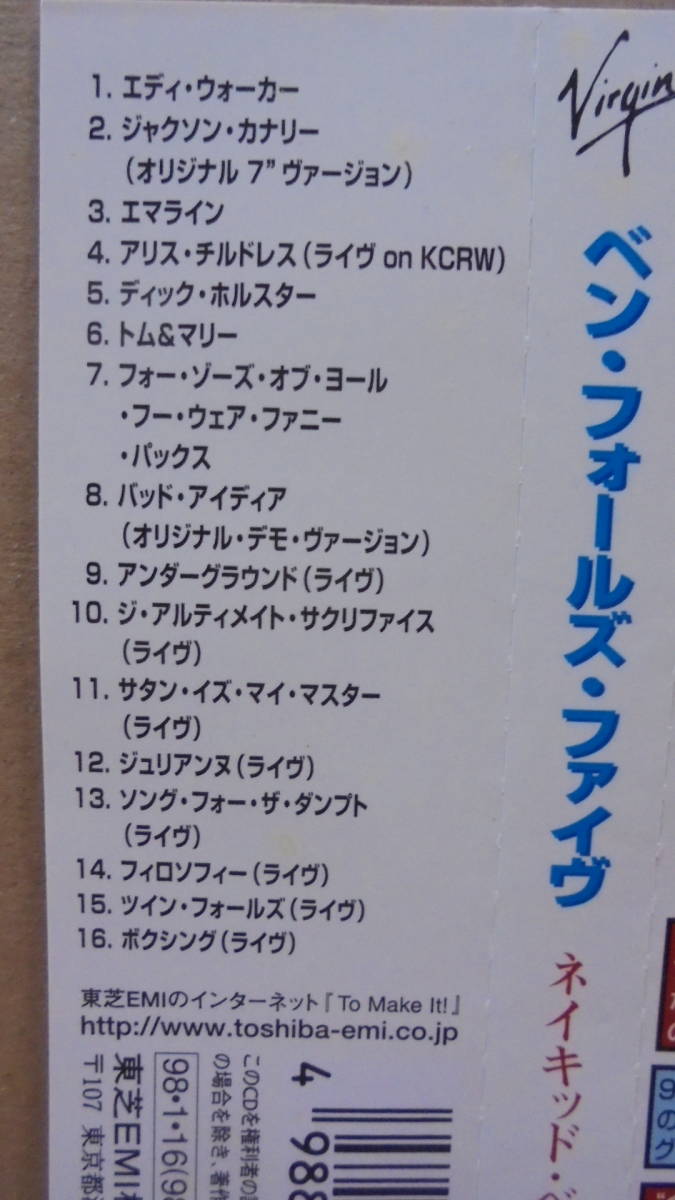 1. エディ・ウォーカー
2. ジャクソン・カナリー
(オリジナル 7" ヴァージョン)
3. エマライン
4. アリス・チルドレス(ライヴ on KCRW)
5. ディック・ホルスター
6. トム&マリー
7. フォー・ゾーズ・オブ・ヨール
・フー・ウェア・ファニー
・パックス
8. バッド・アイディア
(オリジナル・デモ・ヴァージョン)
9. アンダーグラウンド(ライヴ)
10. ジ・アルティメイト・サクリファイス
(ライヴ)
11. サタン・イズ・マイ・マスター
(ライヴ)
12. ジュリアンヌ(ライヴ)
13. ソング・フォー・ザ・ダンプト
(ライヴ)
14. フィロソフィー(ライヴ)
15. ツイン・フォールズ(ライヴ)
16. ボクシング(ライヴ)
東芝EMIのインターネット『To Make It!』
http://www.toshiba-emi.co.jp
このCDを権利者の
の場合を除き、著作
98・1・16(98
東芝EMI
〒107 東京都
4 988
Virgin
ベン・フォールズ・ファイヴ
ネイキッド・